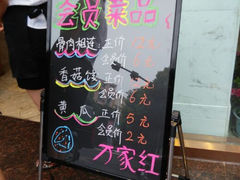 会员菜品
骨肉相连：正价
会员价 元
香菇饺 正价 元
会员价 6元
黄瓜：正价 5元
会员价 2元
万家红